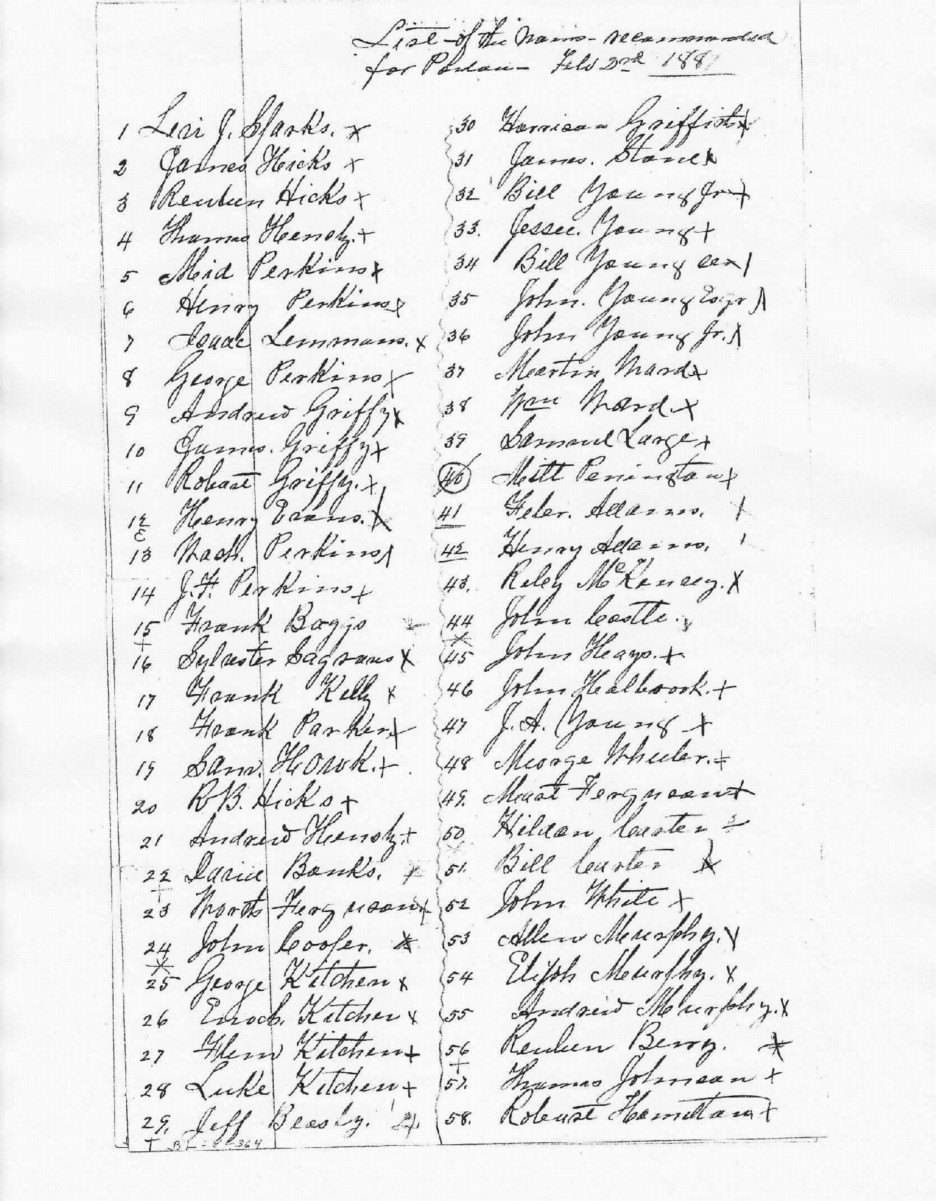 List of the Names recommended
for Pardon Feb 3rd 188
1 Levi J. Sparks. x
2 James Hicks x
3 Reuben Hicks x
4 Thomas Hensly. +
5 Mid Perkins x
6 Henry Perkins x
7 Isaac Lemmans. x
8 George Perkins x
9 Andrew Griffy x
10 James. Griffy x
11 Robart Griffy. x
12 Henry Evans. x
13 Mach. Perkins x
14 J. H. Perkins +
15 Frank Boggs
16 Sylvester Sagraves x
17 Frank Kelly x
18 Frank Parker x
19 Sam. Howk. +
20 R B. Hicks +
21 Andrew Hensly. +
22 David Banks. x
23 Worth Ferguson x
24 John Cooper. x
25 George Kitchen x
26 Enoch. Kitchen x
27 Flem Kitchen +
28 Luke Kitchen +
29. Jeff Beasly.
B 364
30 Harrison Griffith x
31 James. Stone x
32 Bill Young Jr +
33. Jessee. Young +
34 Bill Young
35 John. Young Esqr
36 John Young Jr.
37 Martin Ward x
38 Wm Ward. x
39 Samuel Large +
40 Milt Penington x
41 Adams.
42 Henry Adams.
43. Riley McKensey. x
44 John Castle.
45 John Hays. +
46 John Halbrook. +
47 J. A. Young x
48 George Wheeler. +
49. Mart Ferguson +
50. Carter
51. Bill Carter x
52 John White x
53 Allen Murphy. x
54 Elijoh Murphy. x
55 Andrew Murphy. x
56 Reuben Berry. x
57. Thomas Johnson +
58. Robert Hamilton +